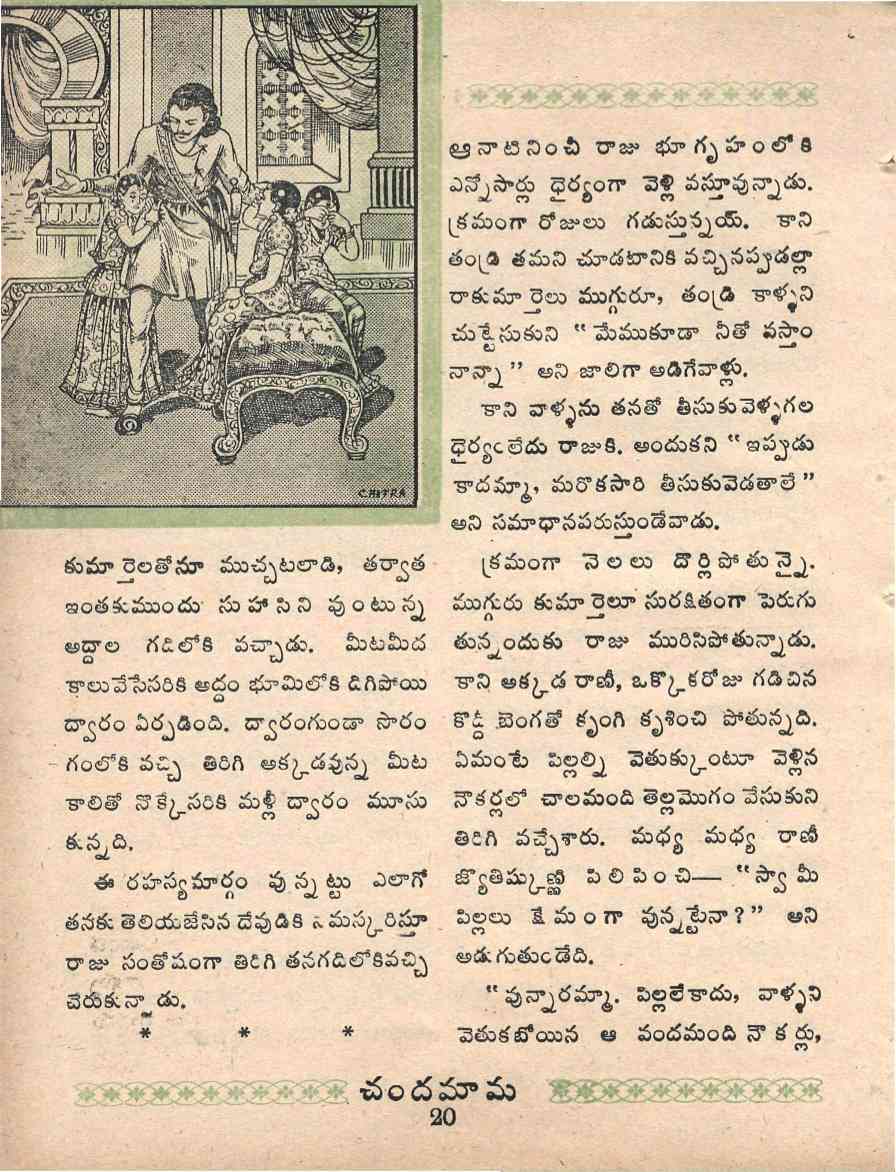 CHITRA
కుమార్తెలతోనూ ముచ్చటలాడి, తర్వాత
ఇంతకుముందు సుహాసిని వుంటున్న
అద్దాల గదిలోకి వచ్చాడు. మీటమీద
కాలువేసేసరికి అద్దం భూమిలోకి దిగిపోయి
ద్వారం ఏర్పడింది. ద్వారంగుండా సొరం
గంలోకి వచ్చి తిరిగి అక్కడవున్న మీట
కాలితో నొక్కేసరికి మళ్లీ ద్వారం మూసు
కున్నది.
ఈ రహస్యమార్గం వున్నట్టు ఎలాగో
తనకు తెలియజేసిన దేవుడికి నమస్కరిస్తూ
రాజు సంతోషంగా తిరిగి తనగదిలోకివచ్చి
చేరుకున్నాడు.
* * *
ఆనాటినించీ రాజు భూగృహంలోకి
ఎన్నోసార్లు ధైర్యంగా వెళ్లి వస్తూవున్నాడు.
క్రమంగా రోజులు గడుస్తున్నయ్. కాని
తండ్రి తమని చూడటానికి వచ్చినప్పుడల్లా
రాకుమార్తెలు ముగ్గురూ, తండ్రి కాళ్ళని
చుట్టేసుకుని “ మేముకూడా నీతో వస్తాం
నాన్నా ” అని జాలిగా అడిగేవాళ్లు.
కాని వాళ్ళను తనతో తీసుకువెళ్ళగల
ధైర్యంలేదు రాజుకి. అందుకని “ ఇప్పుడు
కాదమ్మా, మరొకసారి తీసుకువెడతాలే ”
అని సమాధానపరుస్తుండేవాడు.
క్రమంగా నెలలు దొర్లిపోతున్నై.
ముగ్గురు కుమార్తెలూ సురక్షితంగా పెరుగు
తున్నందుకు రాజు మురిసిపోతున్నాడు.
కాని అక్కడ రాణీ, ఒక్కొకరోజు గడిచిన
కొద్దీ బెంగతో కృంగి కృశించి పోతున్నది.
ఏమంటే పిల్లల్ని వెతుక్కుంటూ వెళ్లిన
నౌకర్లలో చాలమంది తెల్లమొగం వేసుకుని
తిరిగి వచ్చేశారు. మధ్య మధ్య రాణీ
జ్యోతిష్కుణ్ణి పిలిపించి— “స్వామీ
పిల్లలు క్షేమంగా వున్నట్టేనా ? ” అని
అడుగుతుండేది.
“ వున్నారమ్మా. పిల్లలేకాదు, వాళ్ళని
వెతుకబోయిన ఆ వందమంది నౌకర్లు,
చందమామ
20